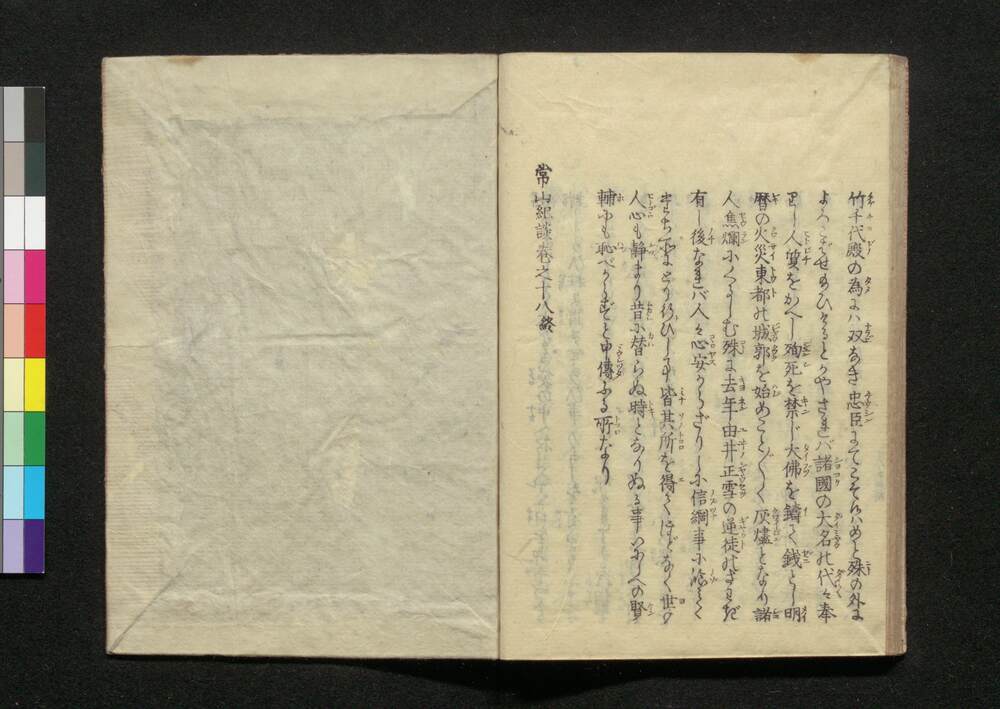 竹千代殿の為にハ双なき忠臣にてこそ候ハめと殊の外に
よろこばせ給ひけるとかやされバ諸國の大名の代々奉
りし人質をかへし殉死を禁じ大佛を鑄て銭とし明
暦の火災東都の城郭を始めこと〴〵く灰燼となり諸
人焦爛にくるしむ殊に去年由井正雪の逆徒の
有し後なれバ人々心安からざりしに信綱事に臨て
とり行ひし事皆其所を得てほどなく世の
人心も静まり昔に替らぬ時となりぬる事いにしへの賢
輔にも恥べからずと申傳ふる所なり
常山紀談巻之十八終